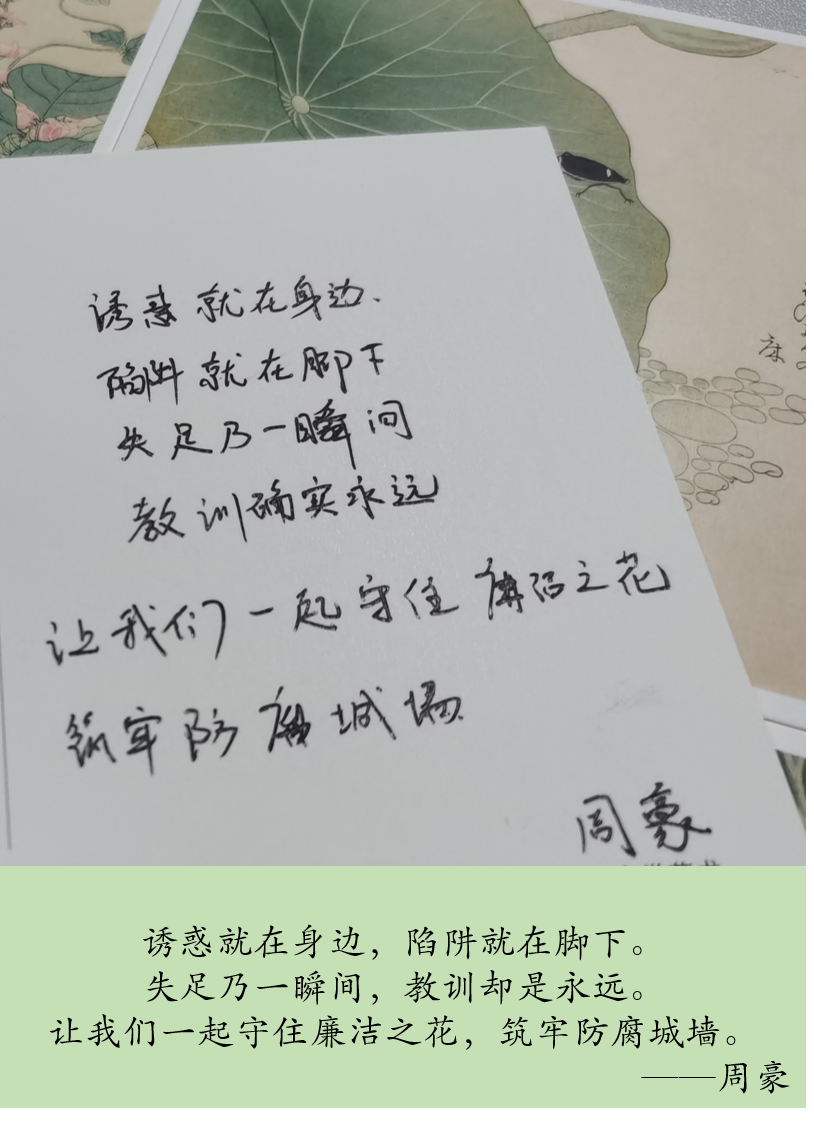 诱惑就在身边、
陷阱就在脚下
失足乃一瞬间
教训确实永远
让我们一起守住廉洁之花
筑牢防腐城墙
周豪
诱惑就在身边，陷阱就在脚下。
失足乃一瞬间，教训却是永远。
让我们一起守住廉洁之花，筑牢防腐城墙。
——周豪